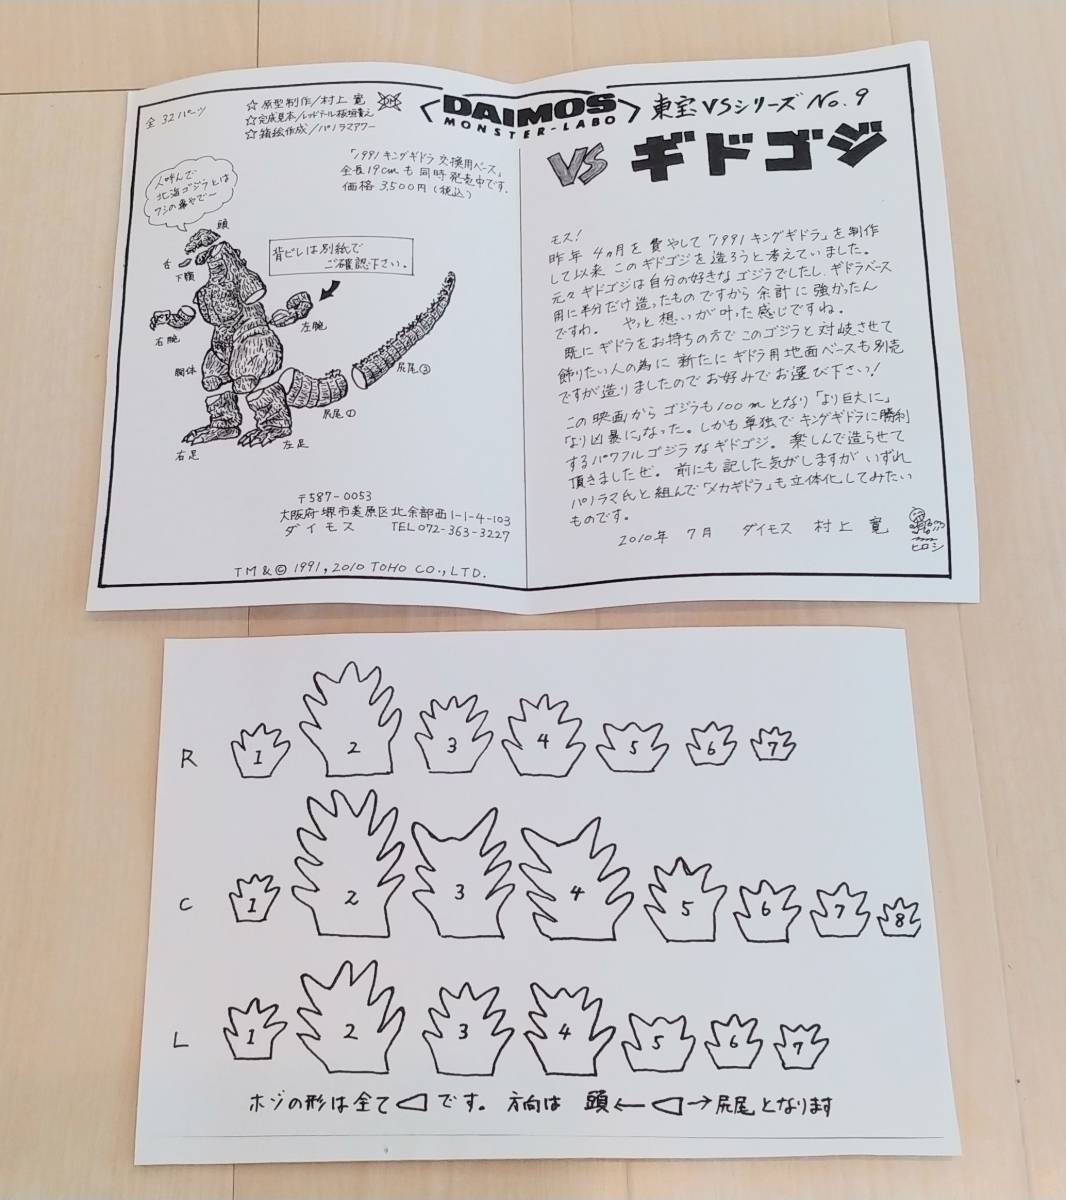 全32パーツ
☆原型制作/村上 寛
☆完成見本/レッドテール板垣貴え
☆箱絵作成/パノラマアワー
DM
DAIMOS
MONSTER-LABO
東宝VSシリーズ No.9
VS ギドゴジ
「1991キングギドラ交換用ベース」
全長19cmも同時発売中です。
価格 3,500円(税込)
人呼んで
北海ゴジラとは
ワシの事やでー
背ビレは別紙で
ご確認下さい。
頭
舌
下顎
右腕
左腕
胴体
尻尾②
尻尾①
左足
右足
〒587-0053
大阪府堺市美原区北余部西1-1-4-103
ダイモス TEL072-363-3227
TM&©1991,2010 TOHO CO.,LTD.
モス!
昨年 4ヵ月を費やして「1991キングギドラ」を制作
して以来 このギドゴジを造ろうと考えていました。
元々ギドゴジは自分の好きなゴジラでしたし、ギドラベース
用に半分だけ造ったものですから余計に強かったん
ですわ。 やっと想いが叶った感じですね。
既にギドラをお持ちの方でこのゴジラと対岐させて
飾りたい人の為に新たにギドラ用地面ベースも別売
ですが造りましたのでお好みでお選び下さい!
この映画からゴジラも100mとなり「より巨大に」
「より凶暴に」なった。しかも単独でキングギドラに勝利
するパワフルゴジラなギドゴジ。楽しんで造らせて
頂きましたぜ。前にも記した気がしますがいずれ
パノラマ氏と組んで「メカギドラ」も立体化してみたい
ものです。
2010年 7月 ダイモス 村上 寛
ヒロシ
R 1 2 3 4 5 6 7
C 1 2 3 4 5 6 7 8
L 1 2 3 4 5 6 7
ホゾの形は全て◁です。方向は 頭←◁→尻尾となります